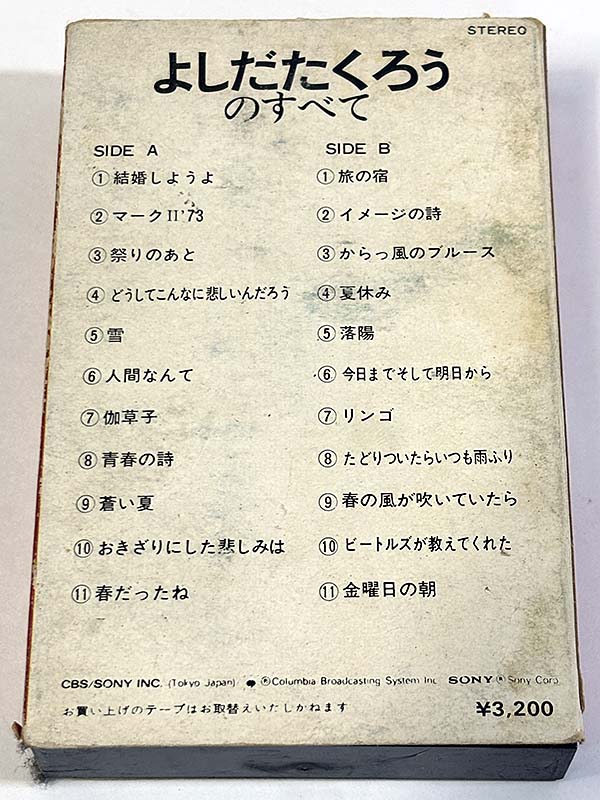 STEREO
よしだたくろう
のすべて
SIDE A
①結婚しようよ
②マークII'73
③祭りのあと
④どうしてこんなに悲しいんだろう
⑤雪
⑥人間なんて
⑦伽草子
⑧青春の詩
⑨蒼い夏
⑩おきざりにした悲しみは
⑪春だったね
SIDE B
①旅の宿
②イメージの詩
③からっ風のブルース
④夏休み
⑤落陽
⑥今日までそして明日から
⑦リンゴ
⑧たどりついたらいつも雨ふり
⑨春の風が吹いていたら
⑩ビートルズが教えてくれた
⑪金曜日の朝
CBS/SONY INC. (Tokyo Japan) ®Columbia Broadcasting System Inc SONY ® Sony Corp
お買い上げのテープはお取替えいたしかねます ¥3,200